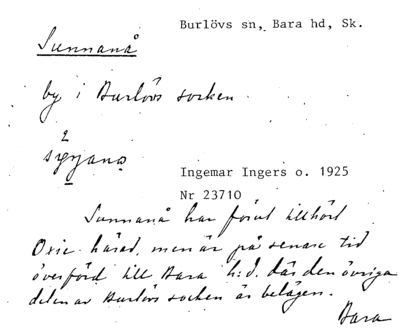 Burlövs sn, Bara hd, Sk.
Sunnanå
by i Burlövs socken.
Ingemar Ingers o. 1925
Nr 23710
Sunnanå har förut tillhört
Oxie härad, men är på senare tid
överförd till Bara h:d. där den övriga
delen av Burlövs socken är belägen.
Bara